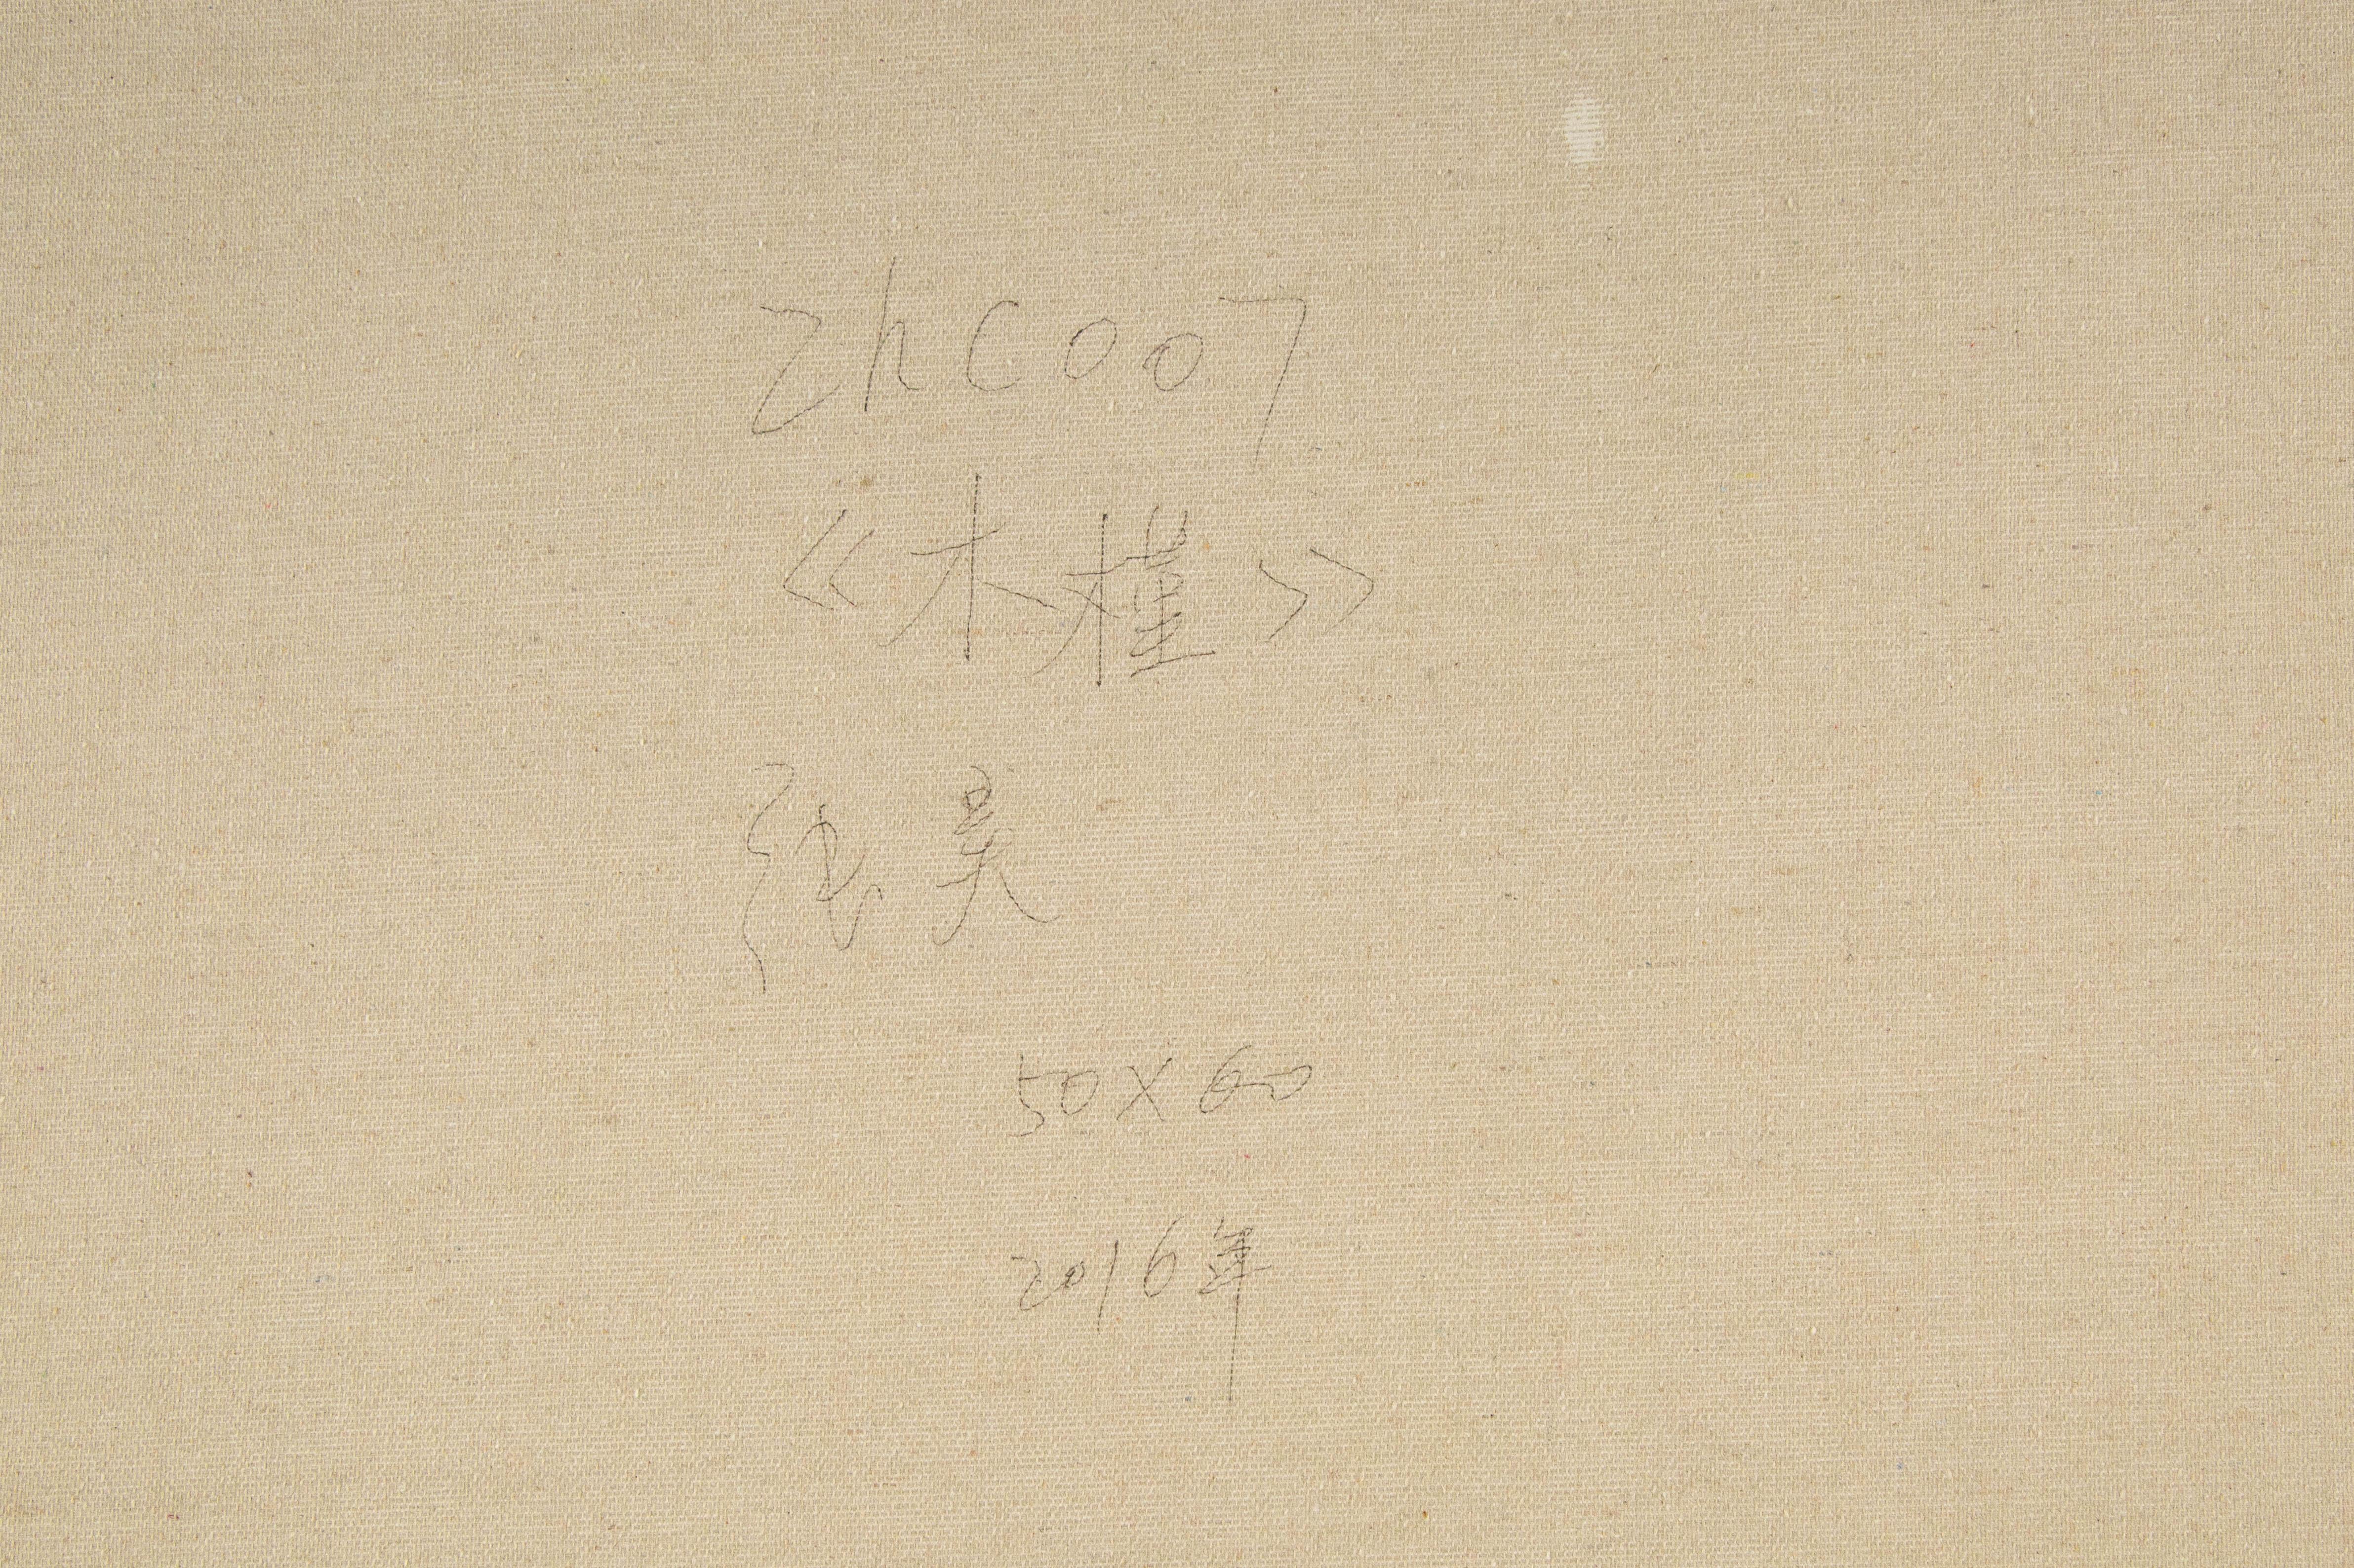 ZhC007
《木槿》
张昊
50×60
2016年